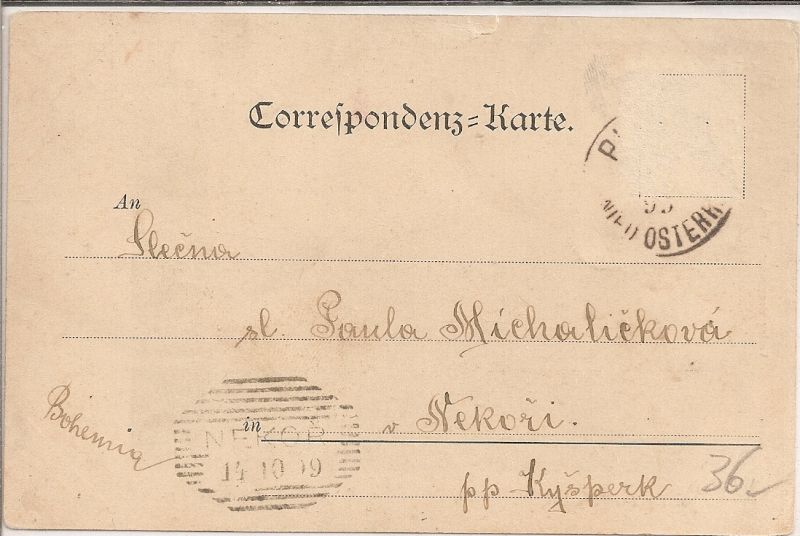 Correspondenz-Karte.
An
Slečna
sl. Paula Michaličková
in v Nekoři.
Bohemia
NEKOŘ
14 10 99
pp Kyšperk
36
OSTERR